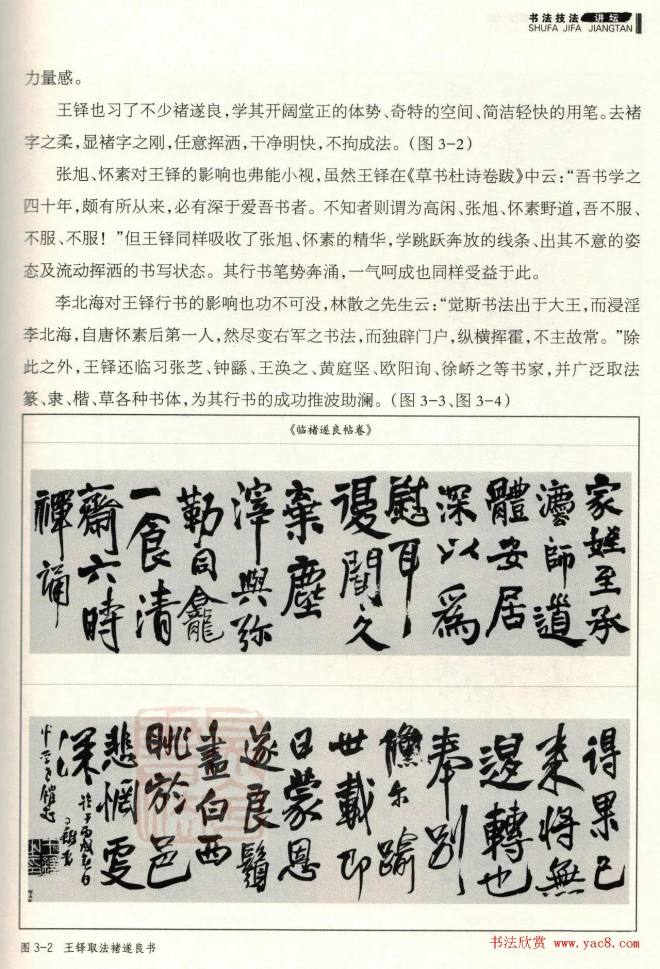 书法技法 讲坛
SHUFA JIFA JIANGTAN
力量感。
王铎也习了不少褚遂良，学其开阔堂正的体势、奇特的空间、简洁轻快的用笔。去褚
字之柔，显褚字之刚，任意挥洒，干净明快，不拘成法。（图 3-2）
张旭、怀素对王铎的影响也弗能小视，虽然王铎在《草书杜诗卷跋》中云：“吾书学之
四十年，颇有所从来，必有深于爱吾书者。不知者则谓为高闲、张旭、怀素野道，吾不服、
不服、不服！”但王铎同样吸收了张旭、怀素的精华，学跳跃奔放的线条、出其不意的姿
态及流动挥洒的书写状态。其行书笔势奔涌，一气呵成也同样受益于此。
李北海对王铎行书的影响也功不可没，林散之先生云：“觉斯书法出于大王，而浸淫
李北海，自唐怀素后第一人，然尽变右军之书法，而独辟门户，纵横挥霍，不主故常。”除
此之外，王铎还临习张芝、钟繇、王涣之、黄庭坚、欧阳询、徐峤之等书家，并广泛取法
篆、隶、楷、草各种书体，为其行书的成功推波助澜。（图 3-3、图 3-4）
《临褚遂良帖卷》
家姪至承
灋師道
體安居
深以爲
慰耳
復聞久
棄塵
滓與弥
勒同龕
一食清
齋六時
禪誦
得果已
來將無
退轉也
奉別
儵尔踰
世載即
日蒙恩
遂良鬚
盡白西
眺於邑
悲惘更
深
图 3-2 王铎取法褚遂良书
书法欣赏 www.yac8.com